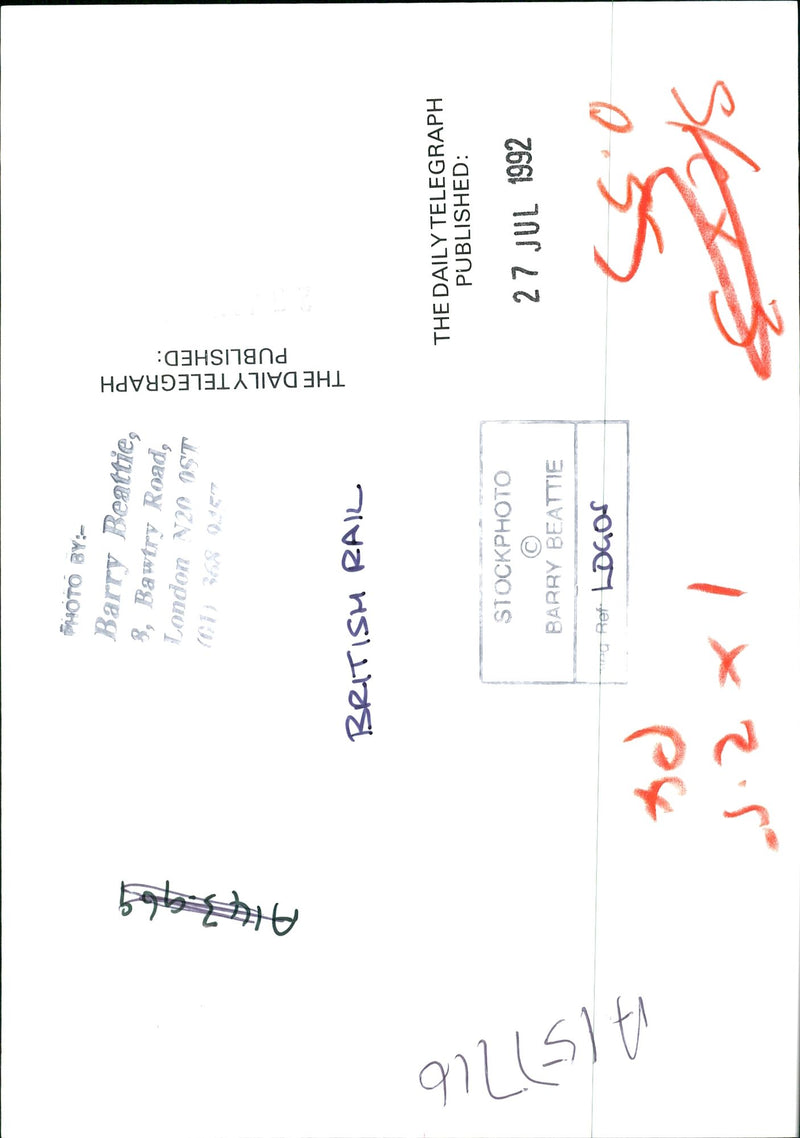 THE DAILY TELEGRAPH
PUBLISHED:
27 JUL 1992
THE DAILY TELEGRAPH
PUBLISHED:
PHOTO BY:-
Barry Beattie,
3, Bawtry Road,
London N20 0ST
(01) 368
BRITISH RAIL
STOCKPHOTO
©
BARRY BEATTIE
Ref LOGOS
5.0
x 1
A157716